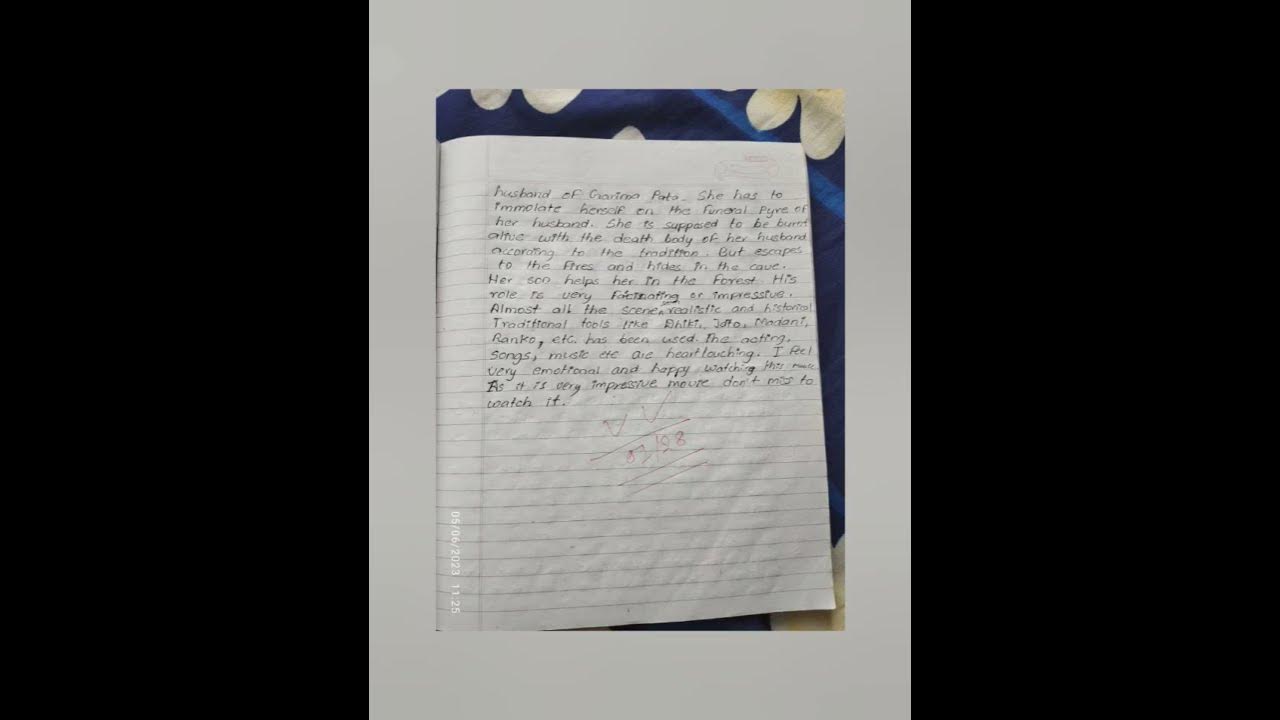 husband of Garima Pata. She has to
immolate herself on the funeral pyre of
her husband. She is supposed to be burnt
alive with the death body of her husband
according to the tradition. But escapes
to the fires and hides in the cave.
Her son helps her in the forest. His
role is very facinating or impressive.
Almost all the scene realistic and historical
Traditional tools like Dhiki, Jato, Madani,
Ranko, etc. has been used. The acting,
songs, music etc are heart touching. I feel
very emotional and happy watching this movie.
As it is very impressive movie don't miss to
watch it.
05/06/2023 11:25